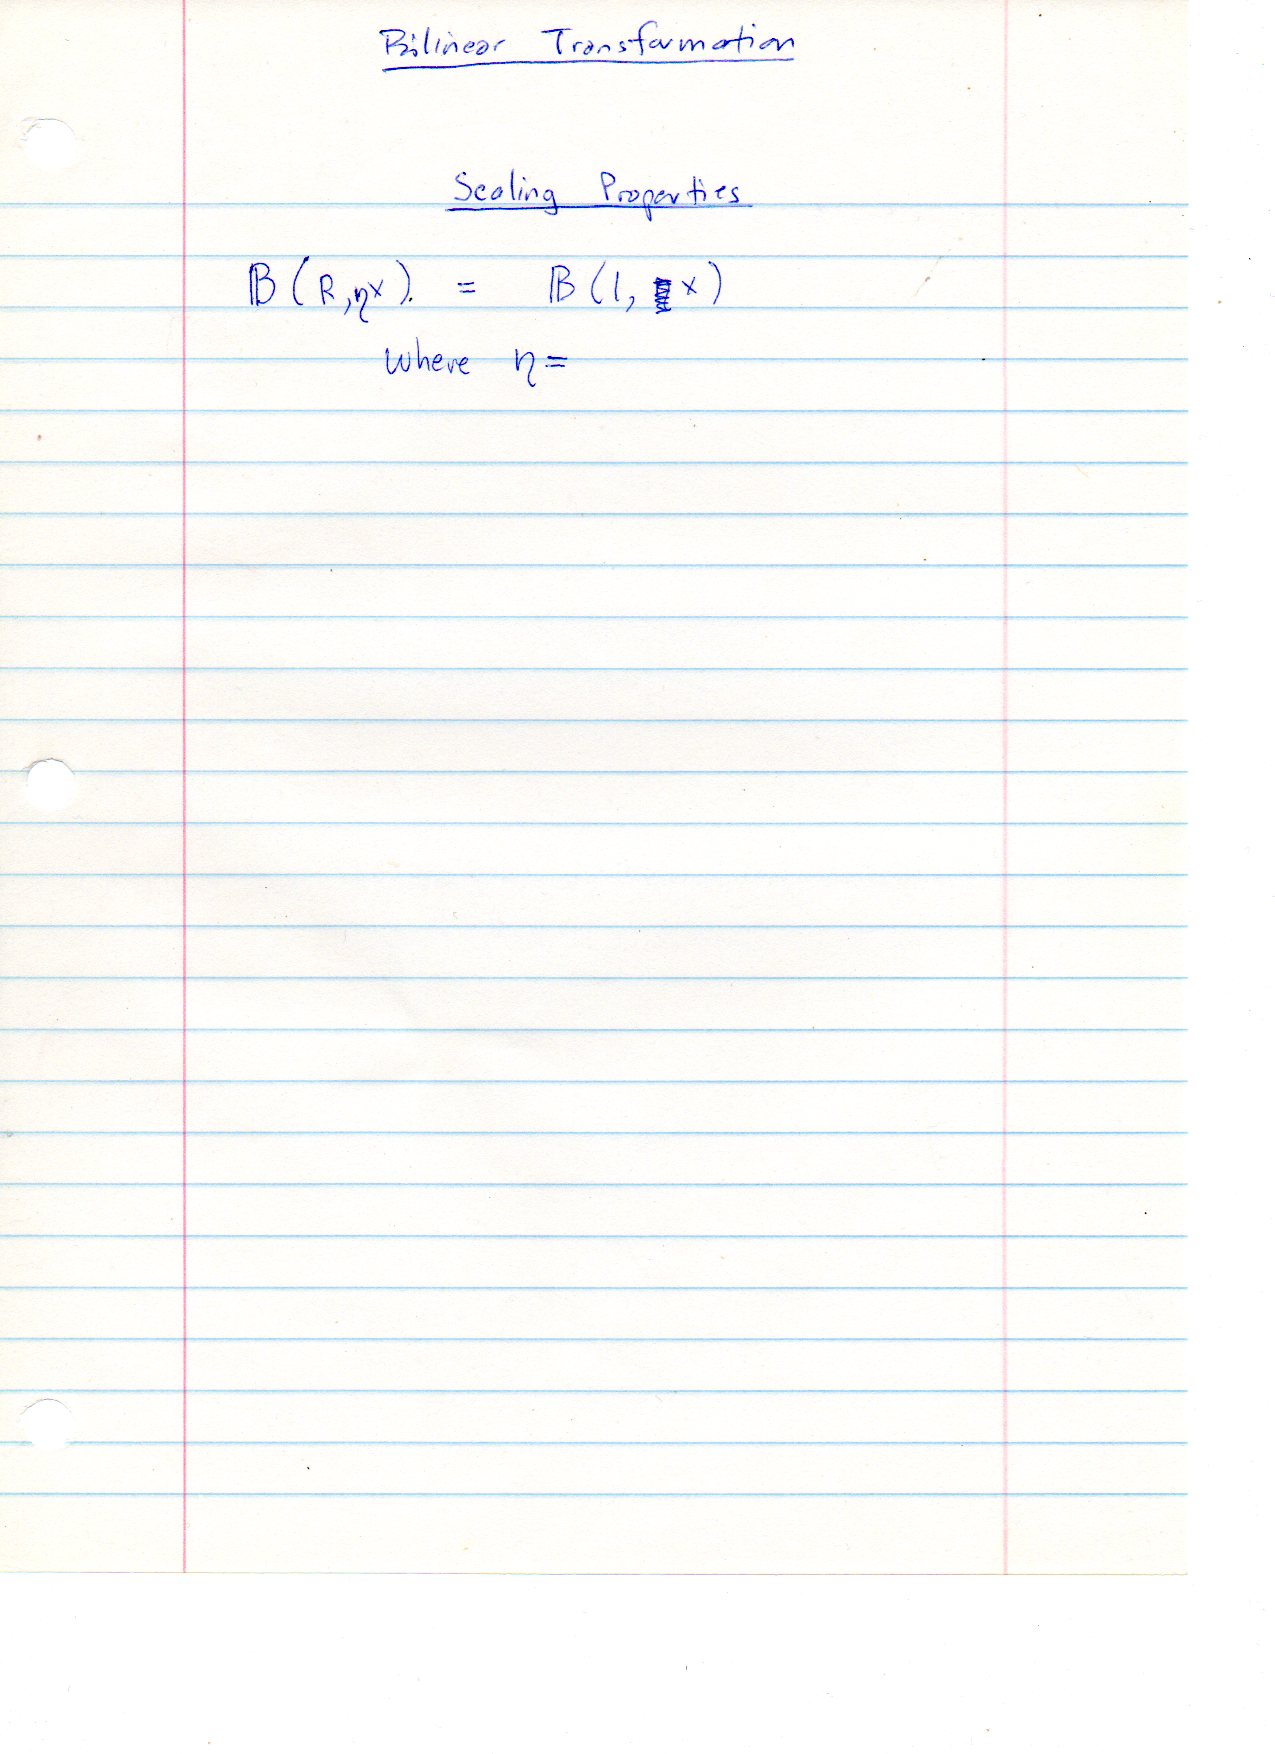 Bilinear Transformation
Scaling Properties
𝔹(R,ηx). = 𝔹(1, x)
where η=